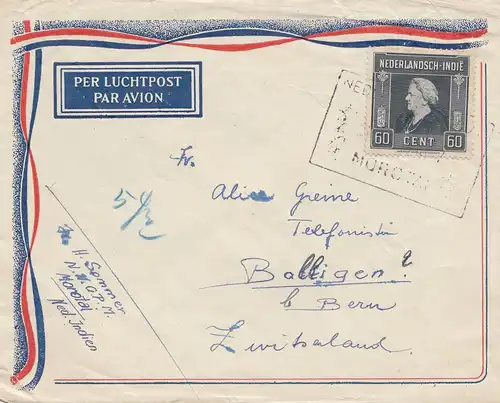 PER LUCHTPOST
PAR AVION
NEDERLANDSCH-INDIË
60 CENT 60
MOROTAI
Fr.
Alice Greine
Telefonistin
Balligen
b Bern
Zwitsaland
H. Sommer
N.W.G.P.M.
Morotai
Ned. Indien